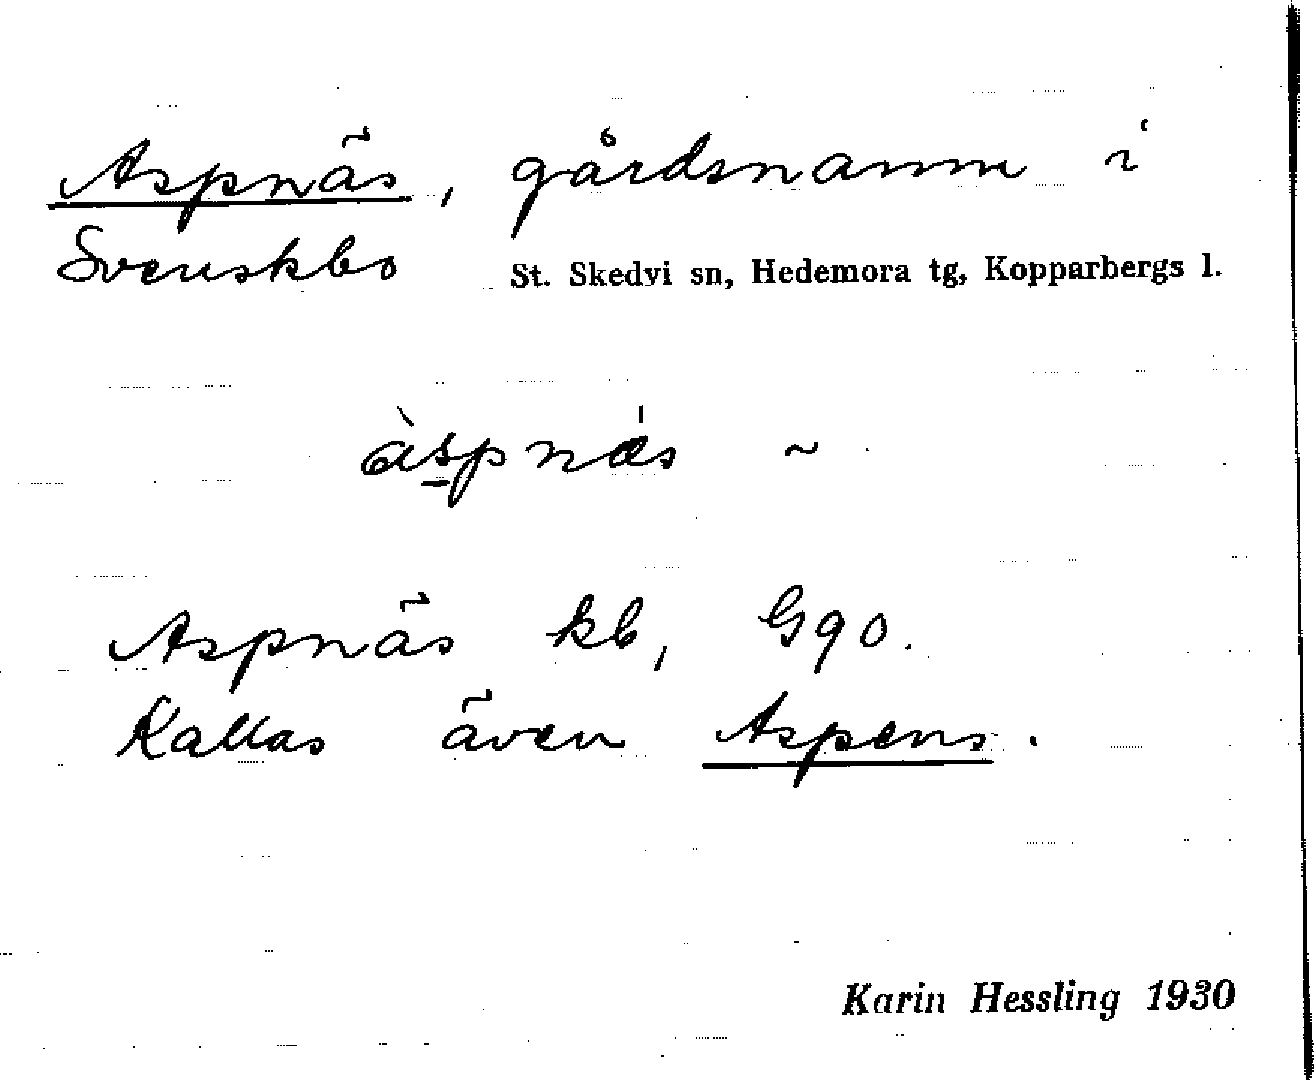 Aspnäs, gårdsnamn i
Svenskbo St. Skedvi sn, Hedemora tg, Kopparbergs l.
àspnäs ~
Aspnäs kb, G90.
Kallas även Aspens.
Karin Hessling 1930